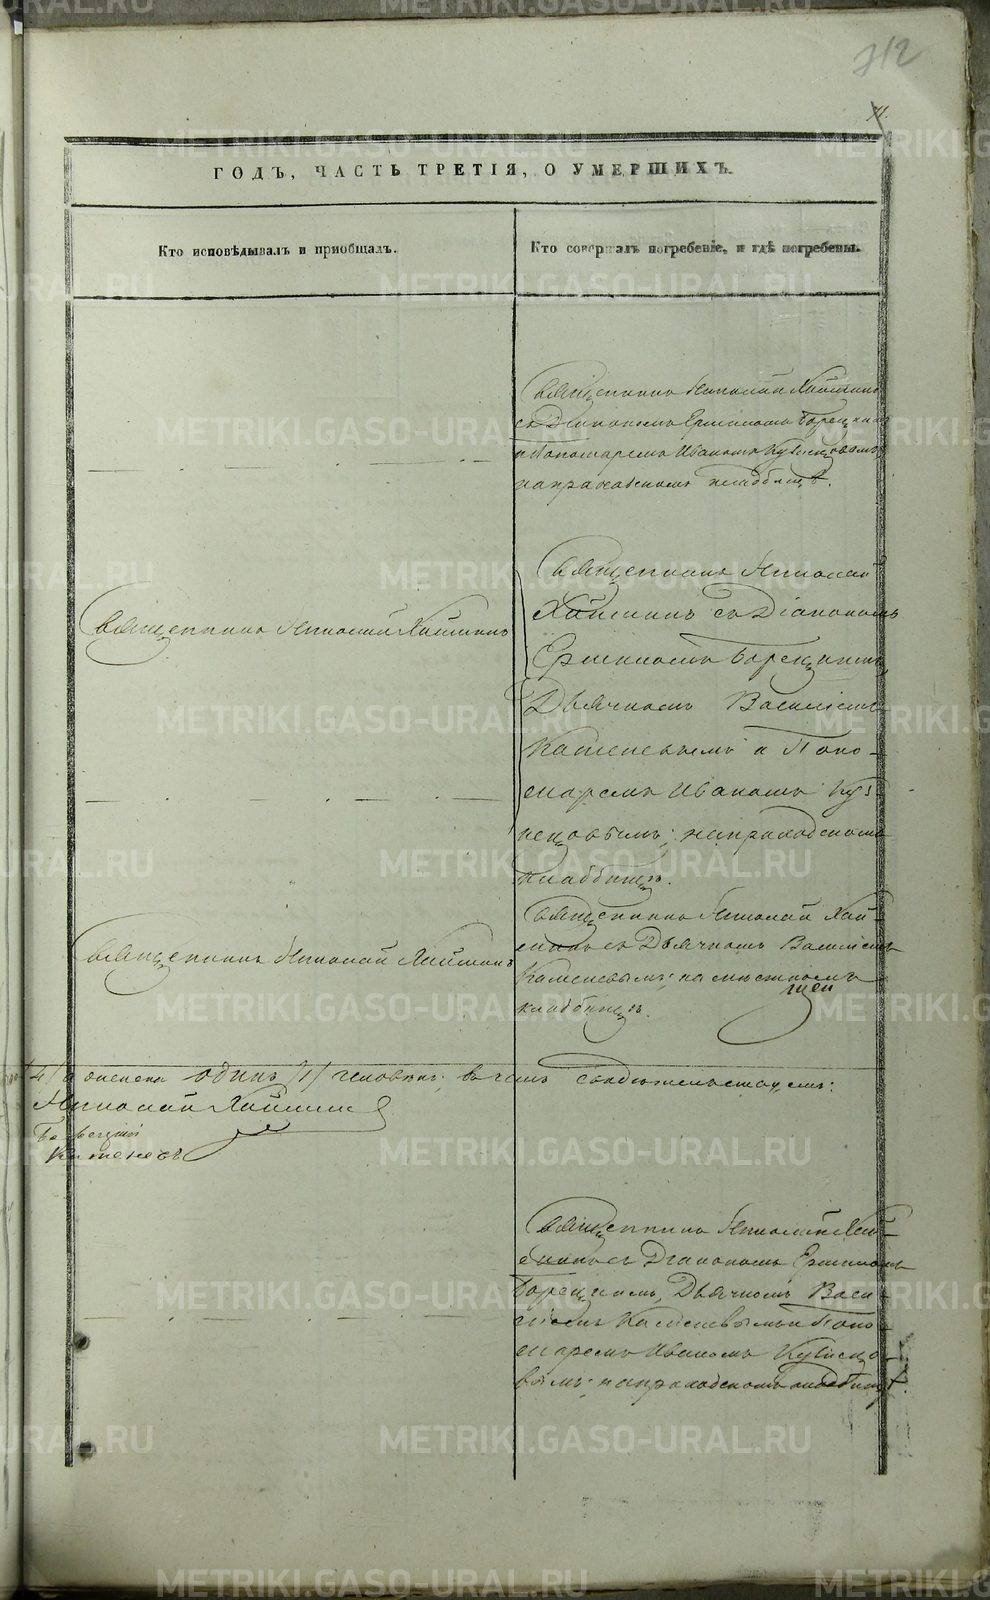 712
ГОДЪ, ЧАСТЬ ТРЕТІЯ, О УМЕРШИХЪ.
Кто исповѣдывалъ и приобщалъ.
Кто совершалъ погребеніе, и гдѣ погребены.
Священникъ Николай Хаймин
съ Діакономъ Ермиломъ Борецкимъ
и Пономаремъ Иваномъ Кузнецовымъ
на приходскомъ кладбищѣ.
Священникъ Николай Хайминъ
Священникъ Николай
Хайминъ съ Діакономъ
Ермиломъ Борецкимъ,
Дьячкомъ Василіемъ
Каменевымъ и Поно-
маремъ Иваномъ Куз-
нецовымъ; на приходскомъ
кладбищѣ.
Священникъ Николай Хайминъ
Священникъ Николай Хай-
минъ съ Дьячкомъ Василіемъ
Каменевымъ; на мѣстномъ
кладбищѣ.
/4/ а одинъ /1/ человѣкъ; въ чемъ свидѣтельствуемъ:
Николай Хайминъ
Борецкий
Каменевъ
Священникъ Николай Хай-
минъ съ Діакономъ Ермиломъ
Борецкимъ, Дьячкомъ Васи-
ліемъ Каменевымъ и Поно-
маремъ Иваномъ Кузнецо-
вымъ; на приходскомъ кладбищѣ.
METRIKI.GASO-URAL.RU